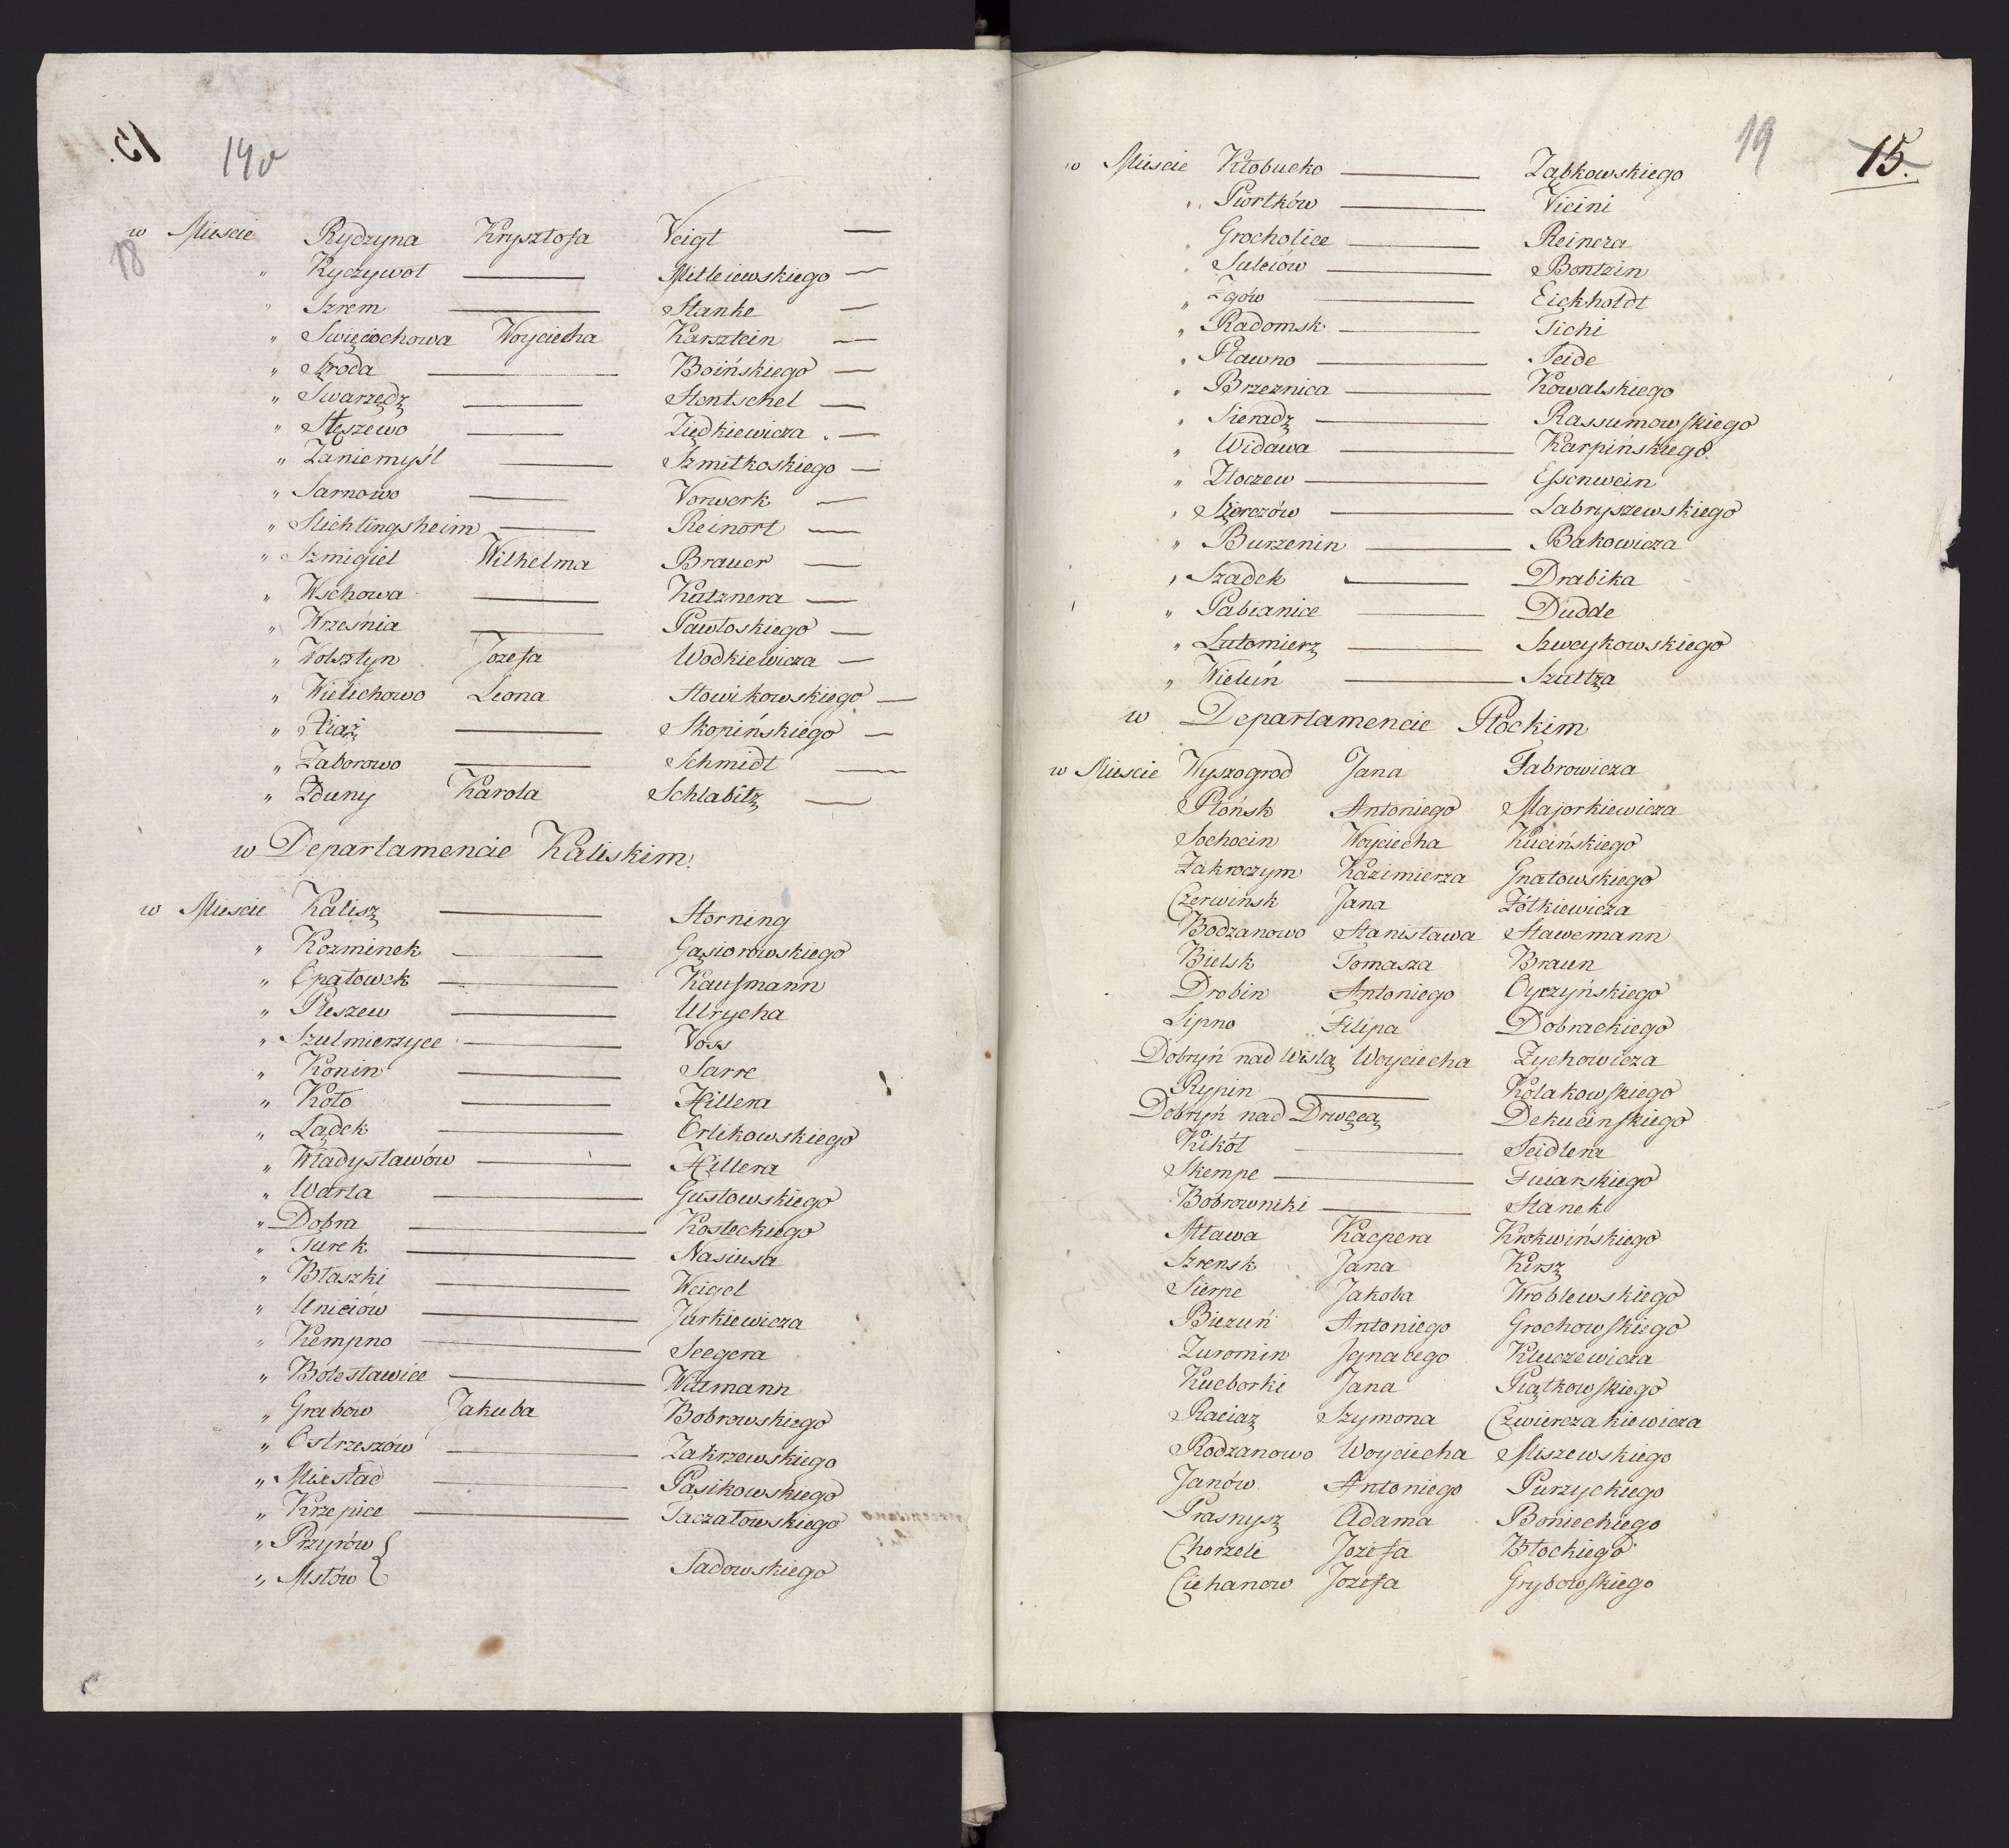 14v
18
w Mieście Rydzyna Krysztofa Veigt —
" Ryczywoł — Mitleiewskiego —
" Szrem — Stanke —
" Swięciochowa Woyciecha Karsztein —
" Szroda — Boińskiego —
" Swarzędz — Hentschel —
" Stęszewo — Ziędkiewicza —
" Zaniemyśl — Szmitkoskiego —
" Sarnowo — Vorwerk —
" Slichtingsheim — Reinort —
" Szmigiel Wilhelma Brauer —
" Wschowa — Kutznera —
" Września — Pawłoskiego —
" Wolsztyn Jozefa Wodkiewicza —
" Wielichowo Leona Słowikowskiego —
" Xiąż — Skopińskiego —
" Zaborowo — Schmidt —
" Zduny Karola Schlabitz —
w Departamencie Kaliskim.
w Mieście Kalisz — Horning
" Kozminek — Gąsiorowskiego
" Opatowek — Kaufmann
" Pleszew — Ulrycha
" Szulmierzyce — Voss
" Konin — Sarre
" Koło — Hillera
" Lądek — Orlikowskiego
" Władysławów — Hillera
" Warta — Gustowskiego
" Dobra — Kosteckiego
" Turek — Nasiusa
" Błaszki — Weigel
" Unieiów — Jurkiewicza
" Kempno — Seegera
" Bolesławice — Witmann
" Grabow Jakuba Bobrowskiego
" Ostrzeszów — Zakrzewskiego
" Mixstad — Pasikowskiego
" Krzepice — Taczałowskiego
" Przyrów }
" Mstów } Sadowskiego
19
15.
w Mieście Kłobucko — Ząbkowskiego
" Piortków — Vicini
" Grocholice — Reincza
" Suleiów — Bontzin
" Zgów — Eichholdt
" Radomsk — Tichi
" Pławno — Teide
" Brzeznica — Kowalskiego
" Sieradz — Rassumowskiego
" Widawa — Karpińskiego
" Złoczew — Essenwein
" Szerczów — Labryszewskiego
" Burzenin — Bakowicza
" Szadek — Drabika
" Pabianice — Dudde
" Lutomierz — Szweykowskiego
" Wieluń — Szultza
w Departamencie Płockim
w Mieście Wyszogrod Jana Fabrowicza
Płońsk Antoniego Majorkiewicza
Sochocin Woyciecha Kucińskiego
Zakroczym Kazimierza Gnatowskiego
Czerwińsk Jana Żółkiewicza
Bodzanowo Stanisława Stawemann
Bielsk Tomasza Braun
Drobin Antoniego Cyrzyńskiego
Lipno Filipa Dobrackiego
Dobryń nad Wisłą Woyciecha Zychowicza
Rypin — Kolakowskiego
Dobryń nad Drwęcą Dekucinskiego
Kikół — Seidlera
Skempe — Fuiarskiego
Bobrowniki — Stanek
Mława Kacpera Krokwińskiego
Szrensk Jana Kirsz
Sierpc Jakoba Wroblewskiego
Bieżuń Antoniego Grochowskiego
Zuromin Jgnacego Kluczewicza
Kuczborki Jana Piątkowskiego
Raciąz Szymona Czwierczakiewicza
Rodzanowo Woyciecha Miszewskiego
Janów Antoniego Purzyckiego
Prasnysz Adama Bonieckiego
Chorzele Jozefa Błockiego
Ciehanow Jozefa Grybowskiego